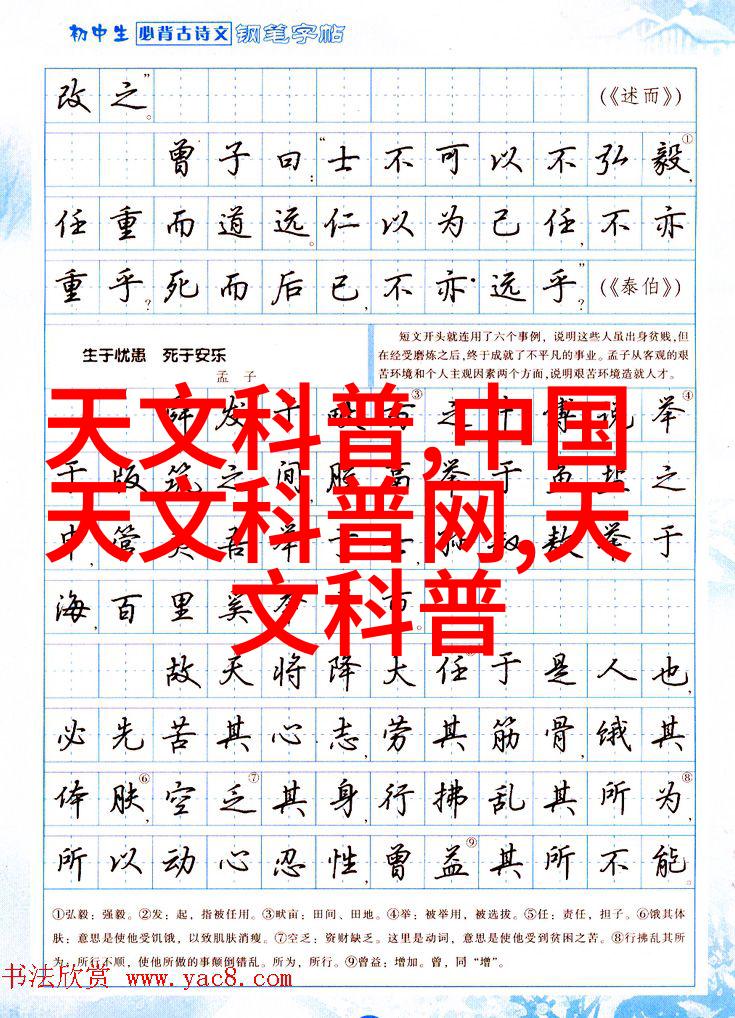 初中生 必背古诗文 钢笔字帖
改之。” (《述而》)
曾子曰:“士不可以不弘毅①,
任重而道远。仁以为己任,不亦
重乎?死而后已,不亦远乎?” (《泰伯》)
生于忧患 死于安乐
孟子
短文开头就连用了六个事例,说明这些人虽出身贫贱,但
在经受磨炼之后,终于成就了不平凡的事业。孟子从客观的艰
苦环境和个人主观因素两个方面,说明艰苦环境造就人才。
舜发于畎亩③之 举④
于版筑之间,胶鬲举于 之
中,管夷吾举于 敖举于
海,百里奚举
天文科普,中国
天文科普网,天
文科普
故天将降大任⑤于是人也,
必先苦其心志,劳其筋骨,饿其
体肤⑥,空乏⑦其身,行拂乱其所为⑧,
所以动心忍性,曾益⑨其所不能。
①弘毅:强毅。②发:起,指被任用。③畎亩:田间、田地。④举:被举用,被选拔。⑤任:责任,担子。⑥饿其体
肤:意思是使他受饥饿,以致肌肤消瘦。⑦空乏:资财缺乏。这里是动词,意思是使他受到贫困之苦。⑧行拂乱其所
为:所行不顺,使他所做的事颠倒错乱。所为,所行。⑨曾益:增加。曾,同“增”。
书法欣赏 www.yac8.com